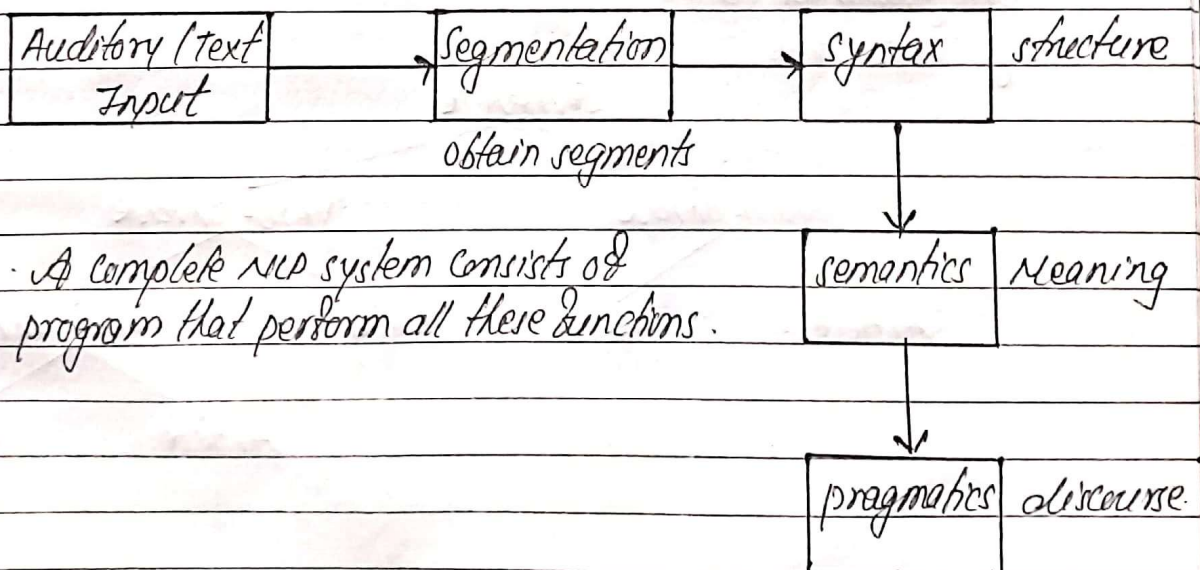 Auditory / Text
Input
Segmentation
syntax
structure
obtain segments
. A complete NLP system consists of
program that perform all these functions.
semantics
Meaning
pragmatics
discourse.